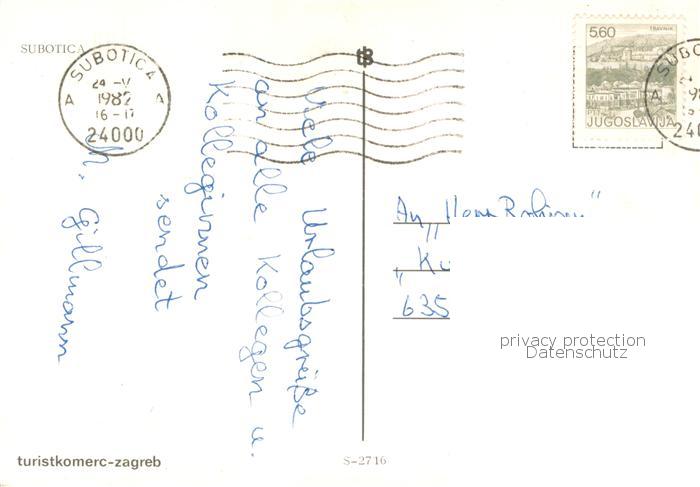 SUBOTICA
SUBOTICA
24 -V
A 1982 A
16-17
24000
5.60
TRAVNIK
JUGOSLAVIJA
Viele Urlaubsgrüße
an alle Kollegen u.
Kolleginnen
sendet
N. Gillmann
An
635
privacy protection
Datenschutz
turistkomerc-zagreb
S-2716